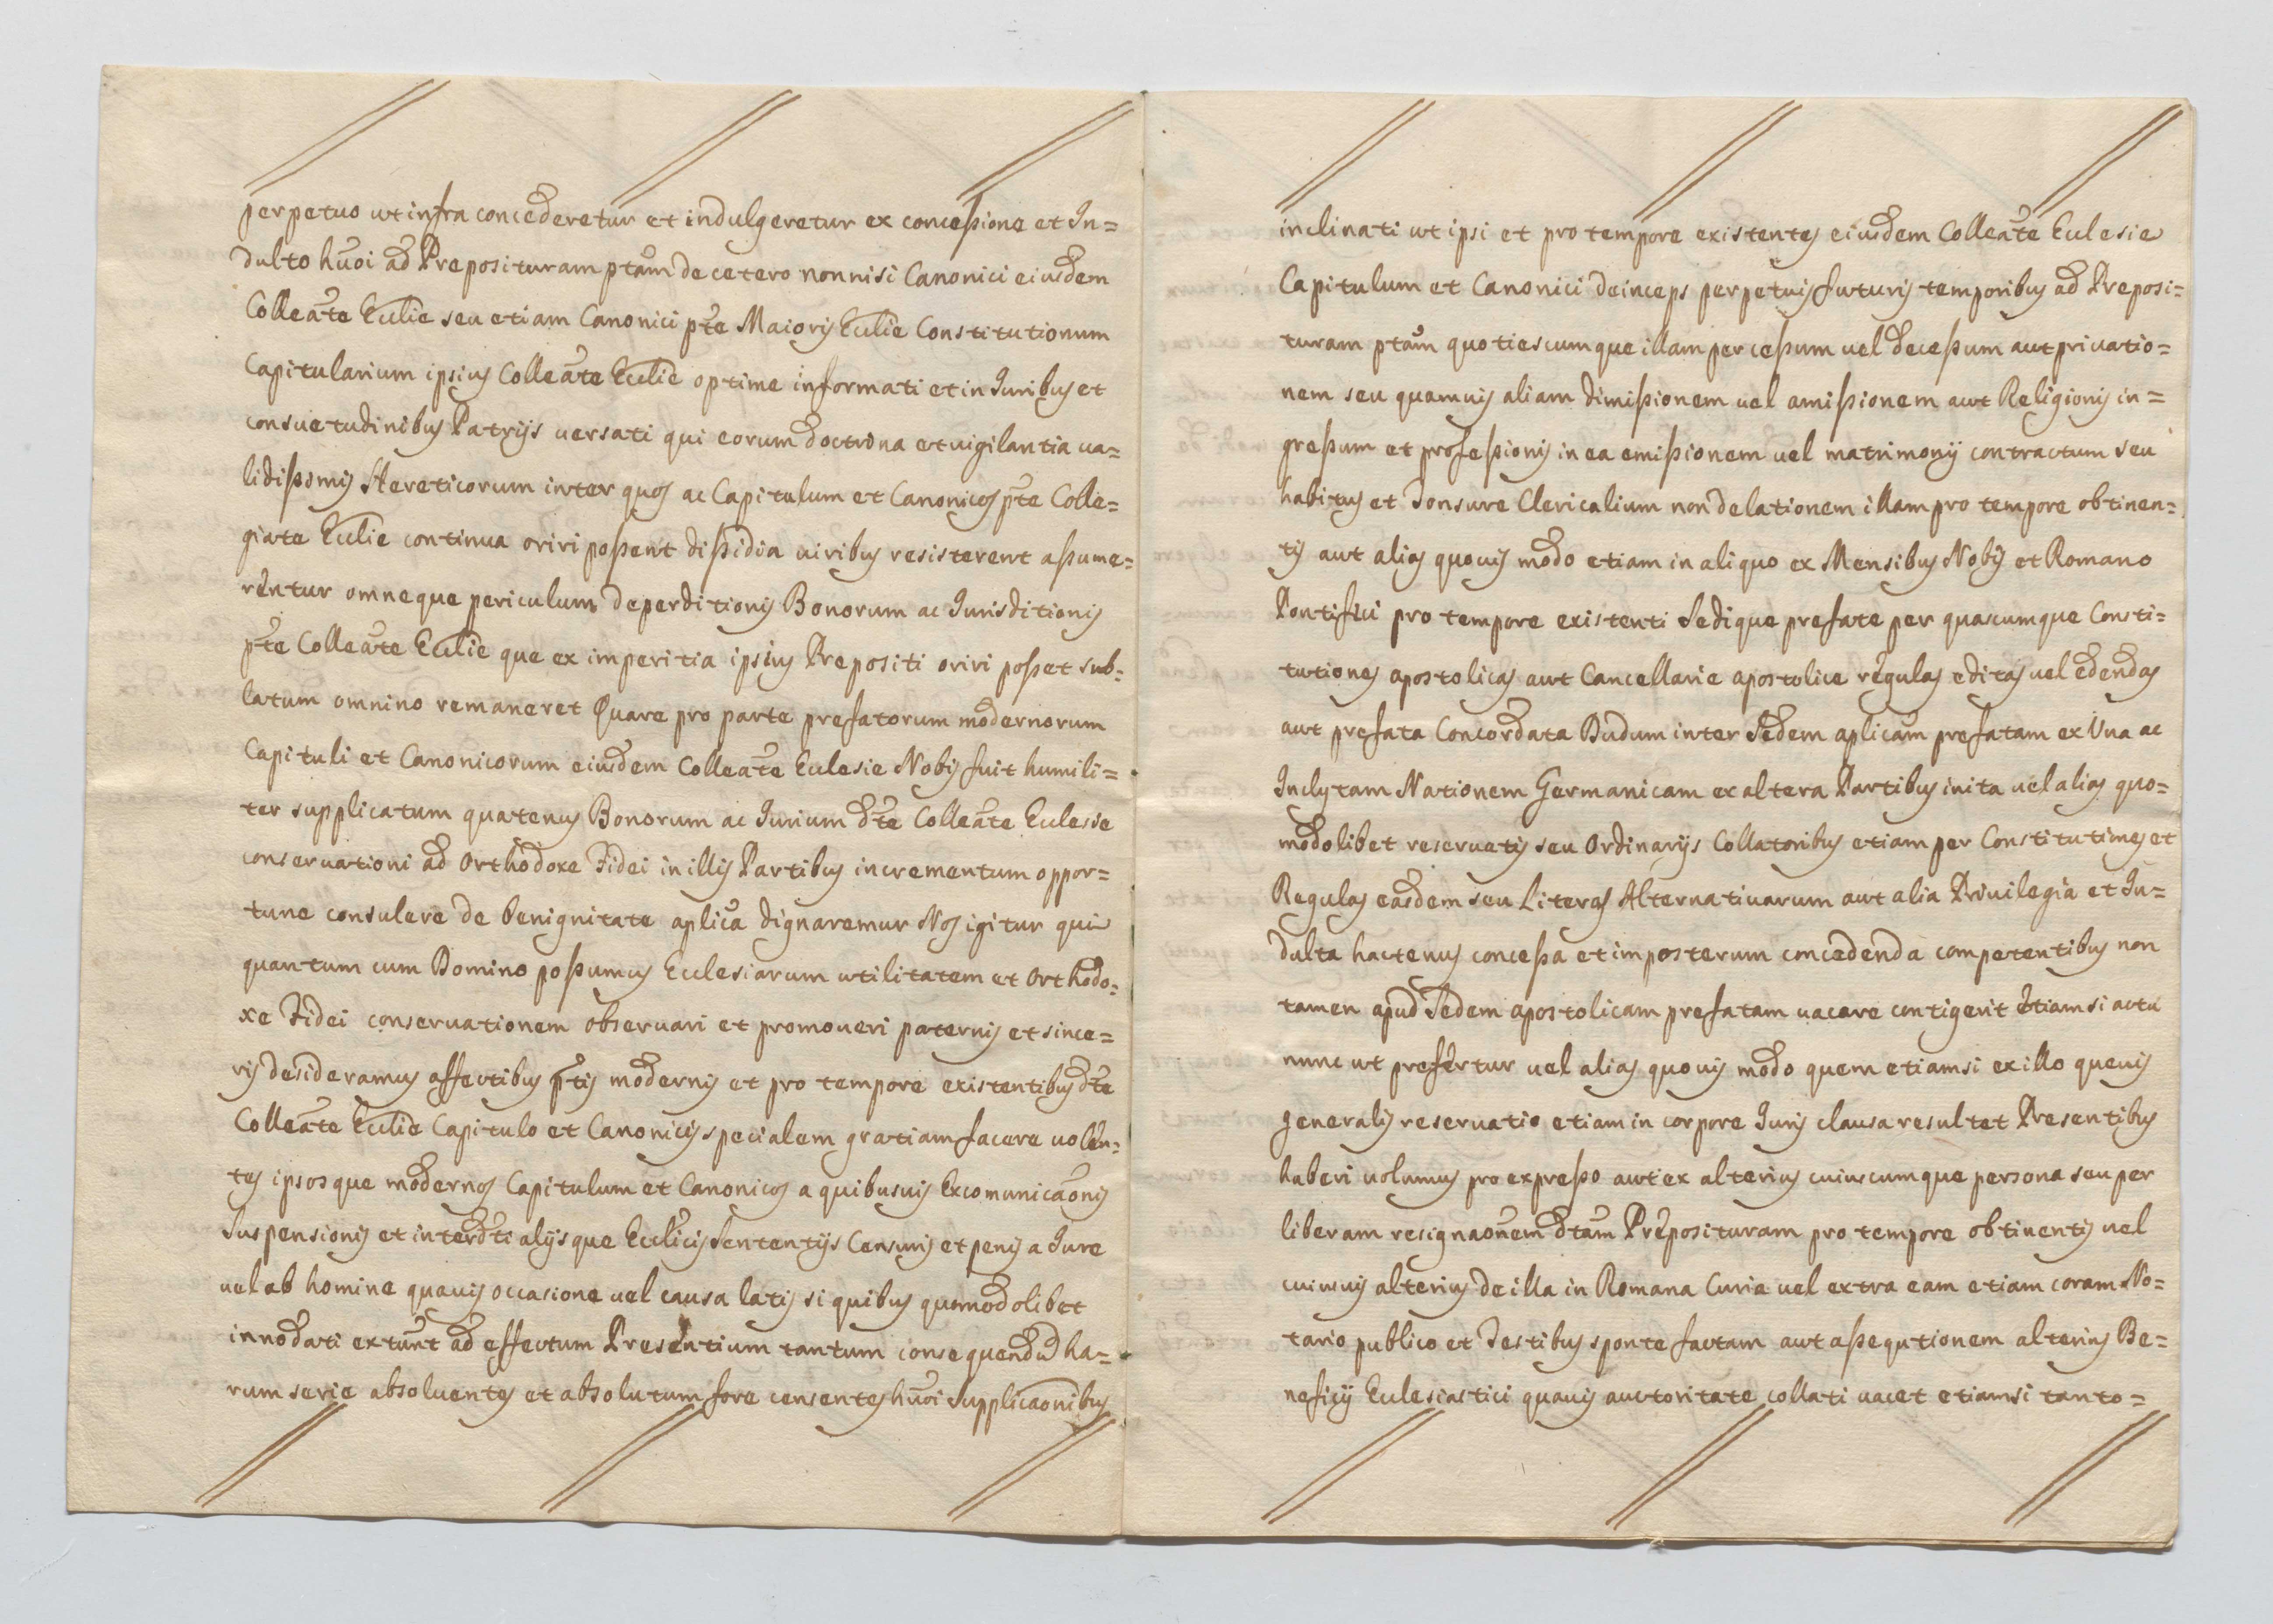 perpetuo ut infra concederetur et indulgeretur ex conceßione et In=
dulto hũoi ad Preposituram ptãm de cetero nonnisi Canonici eiusdem
Colleãte Ecclie seu etiam Canonici pte Maioris Ecclie Constitutionum
Capitularium ipsius Colleãte Ecclie optime informati et in Iuribus et
consuetudinibus Patrijs uersati qui eorum doctrina et uigilantia ua=
lidißimis Hereticorum inter quos ac Capitulum et Canonicos pte Colle=
giate Ecclie continua oriri poßent dißidia uiribus resisterent aßume=
rentur omneque periculum deperditionis Bonorum ac Iurisditionis
pte Colleãte Ecclie que ex imperitia ipsius Prepositi oriri poßet sub=
latum omnino remaneret Quare pro parte prefatorum modernorum
Capituli et Canonicorum eiusdem Colleãte Eclesie Nobis fuit humili=
ter supplicatum quatenus Bonorum ac Iurium dte Colleãte Eclesie
conseruationi ad Orthodoxe Fidei in illis Partibus incrementum oppor=
tune consulere de benignitate aplica dignaremur Nos igitur qui
quantum cum Domino poßumus Ecclesiarum utilitatem et Orthodo=
xe Fidei conseruationem obseruari et promoueri paternis et since=
ris desideramus affectibus ptis modernis et pro tempore existentibus dte
Colleãte Ecclie Capitulo et Canonicis specialem gratiam facere uolen=
tes ipsosque modernos Capitulum et Canonicos a quibusuis Excomunicaõnis
Suspensionis et interdti alijsque Ecclicis Sententijs Censuris et penis a Iure
uel ab homine quauis occasione uel causa latis si quibus quomodolibet
innodati extunt ad effectum Presentium tantum consequendum ha=
rum serie absoluentes et absolutum fore censentes hũoi Supplicaonibus
inclinati ut ipsi et pro tempore existentes eiusdem Colleãte Eclesie
Capitulum et Canonici deinceps perpetuis futuris temporibus ad Preposi=
turam ptãm quotiescumque illam per ceßum uel deceßum aut priuatio=
nem seu quamuis aliam dimißionem uel amißionem aut Religionis in=
greßum et profeßionis in ea emißionem uel matrimonij contractum seu
habitus et Tonsure Clericalium non delationem illam pro tempore obtinen=
tis aut alias quouis modo etiam in aliquo ex Mensibus Nobis et Romano
Pontifici pro tempore existenti Sedique prefate per quascumque Consti=
tutiones apostolicas aut Cancellarie apostolice regulas editas uel edendas
aut prefata Concordata Dudum inter Sedem aplicam prefatam ex Vna ac
Inclytam Nationem Germanicam ex altera Partibus inita uel alias quo=
modolibet reseruatis seu Ordinarijs Collatoribus etiam per Constitutiones et
Regulas easdem seu Literas Alternatiuarum aut alia Priuilegia et In=
dulta hactenus conceßa et imposterum concedenda competentibus non
tamen apud Sedem apostolicam prefatam uacare contigerit Etiamsi actu
nunc ut prefertur uel alias quouis modo quem etiamsi ex illo queuis
generalis reseruatio etiam in corpore Iuris clausa resultet Presentibus
haberi uolumus pro expreßo aut ex alterius cuiuscumque persona seu per
liberam resignaõnem dtãm Preposituram pro tempore obtinentis uel
cuiusuis alterius de illa in Romana Curia uel extra eam etiam coram No=
tario publico et Testibus sponte factam aut aßequtionem alterius Be=
neficij Eclesiastici quauis auctoritate collati uacet etiamsi tanto=